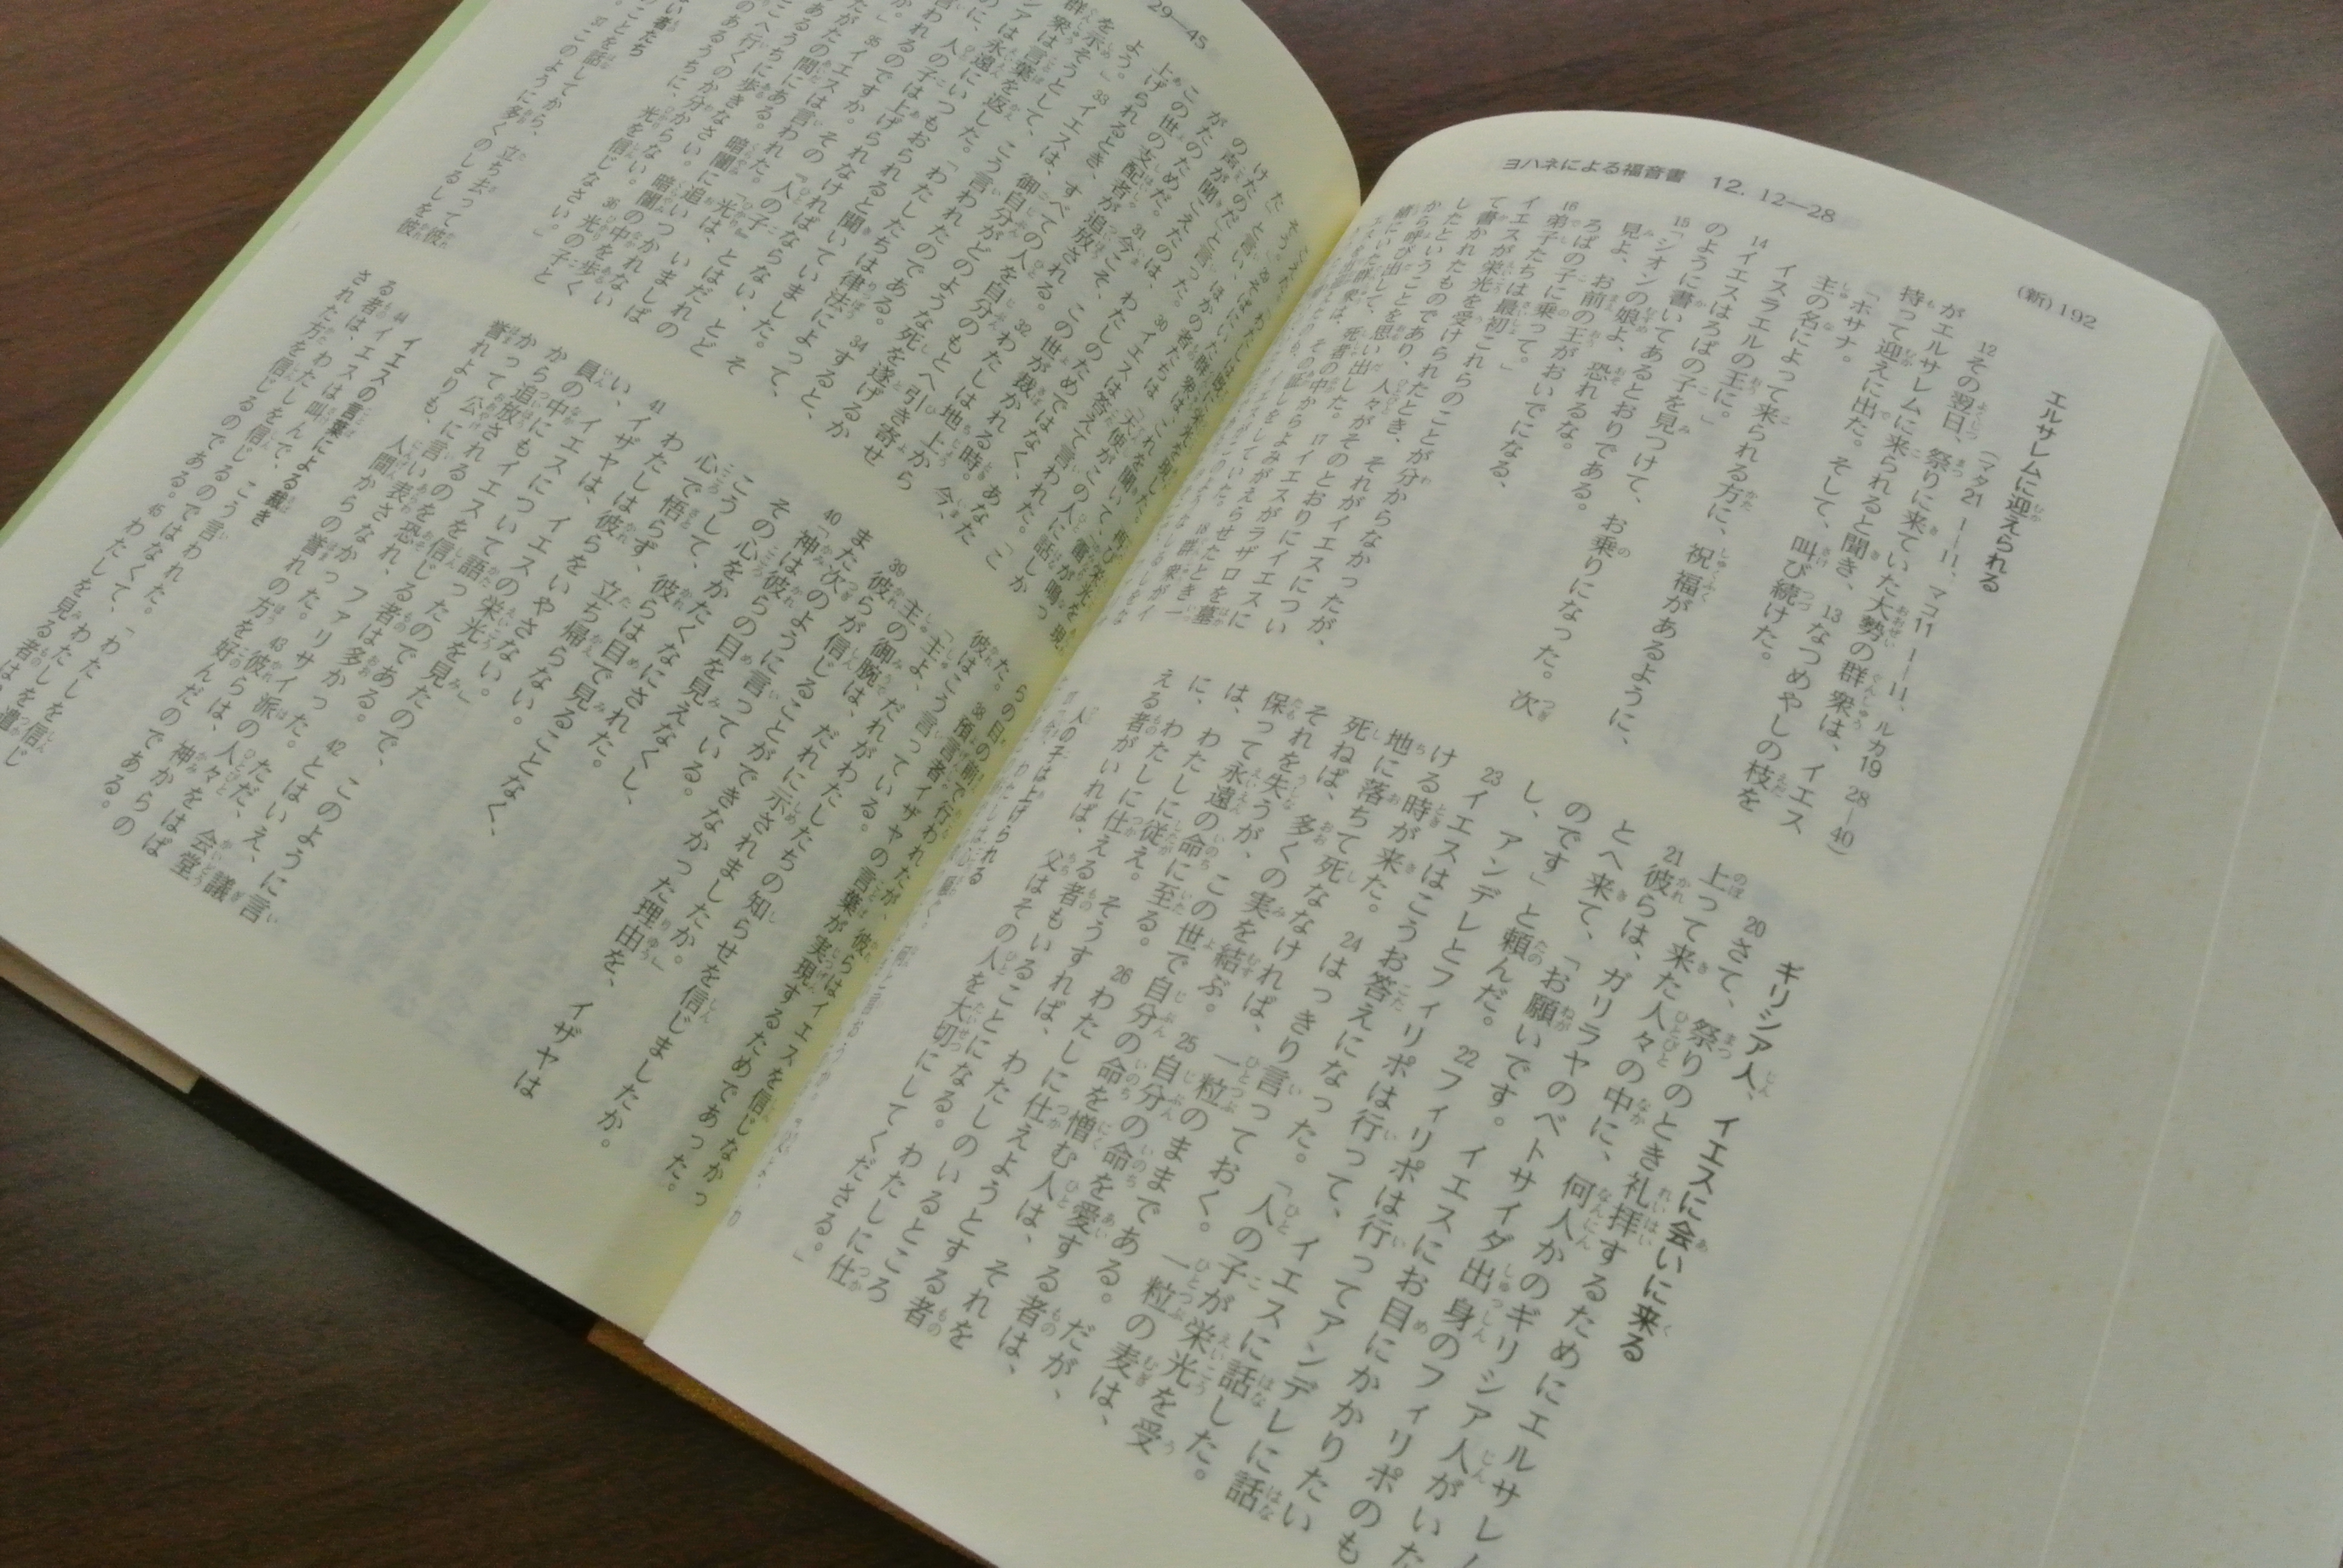 (新) 192
ヨハネによる福音書 12. 12—28
エルサレムに迎えられる
(マタ21 1—11、マコ11 1—11、ルカ19 28—40)
12その翌日、祭りに来ていた大勢の群衆は、イエス
がエルサレムに来られると聞き、13なつめやしの枝を
持って迎えに出た。そして、叫び続けた。
「ホサナ。
主の名によって来られる方に、祝福があるように、
イスラエルの王に。」
14イエスはろばの子を見つけて、お乗りになった。次
のように書いてあるとおりである。
15「シオンの娘よ、恐れるな。
見よ、お前の王がおいでになる、
ろばの子に乗って。」
16弟子たちは最初これらのことが分からなかったが、
イエスが栄光を受けられたとき、それがイエスについ
て書かれたものであり、人々がそのとおりにイエスに
したということを思い出した。17イエスがラザロを墓
から呼び出して、死者の中からよみがえらせたとき一
緒にいた群衆は、その証しをしていた。18群衆が
ギリシア人、イエスに会いに来る
20さて、祭りのとき礼拝するためにエルサレ
上って来た人々の中に、何人かのギリシア人がいた
21彼らは、ガリラヤのベトサイダ出身のフィリポのも
とへ来て、「お願いです。イエスにお目にかかりたい
のです」と頼んだ。22フィリポは行ってアンデレに話
し、アンデレとフィリポは行って、イエスに話した。
23イエスはこうお答えになった。「人の子が栄光を受
ける時が来た。24はっきり言っておく。一粒の麦は、
地に落ちて死ななければ、一粒のままである。だが、
死ねば、多くの実を結ぶ。25自分の命を愛する者は、
それを失うが、この世で自分の命を憎む人は、それを
保って永遠の命に至る。26わたしに仕えようとする者
は、わたしに従え。そうすれば、わたしのいるところ
に、わたしに仕える者もいることになる。わたしに仕
える者がいれば、父はその人を大切にしてくださる。」
人の子は上げられる
29—45
けたのだ」と言い、ほかの者たちは「天使がこの人に話しか
の声が聞こえたのは、30イエスは答えて言われた。「こ
がためだ。31今こそ、この世が裁かれる時。今、
この世の支配者が追放される。32わたしは地上から
上げられるとき、すべての人を自分のもとへ引き寄せ
よう。」33イエスは、御自分がどのような死を遂げるか
を示そうとして、こう言われたのである。34すると、
群衆は言葉を返した。「わたしたちは律法によって、
は永遠にいつもおられると聞いていました。
に、人の子は上げられなければならない、とど
35イエスは言われた。「光は、いましば
あなたの間にある。暗闇に追いつかれないよ
あるうちに歩きなさい。暗闇の中を歩く
へ行くのか分からない。36光の子と
のあるうちに、光を信じなさい。」
い者たち
ことを話してから、立ち去って彼
37このように多くのしるしを彼
らの目の前で行われたが、彼らはイエスを信じなかっ
た。38預言者イザヤの言葉が実現するためであった。
彼はこう言っている。
「主よ、だれがわたしたちの知らせを信じましたか。
主の御腕は、だれに示されましたか。」
39彼らが信じることができなかった理由を、イザヤは
また次のように言っている。
40「神は彼らの目を見えなくし、
その心をかたくなにされた。
こうして、彼らは目で見ることなく、
心で悟らず、立ち帰らない。
わたしは彼らをいやさない。」
41イザヤは、イエスの栄光を見たので、このように言
い、イエスについて語ったのである。42とはいえ、議
員の中にもイエスを信じる者は多かった。ただ、会堂
から追放されるのを恐れ、ファリサイ派の人々をはば
かって公に言い表さなかった。43彼らは、神からの
誉れよりも、人間からの誉れの方を好んだのである。
イエスの言葉による裁き
44イエスは叫んで、こう言われた。「わたしを信じ
る者は、わたしを信じるのではなくて、わたしを遣わ
された方を信じるのである。45わたしを見る者は